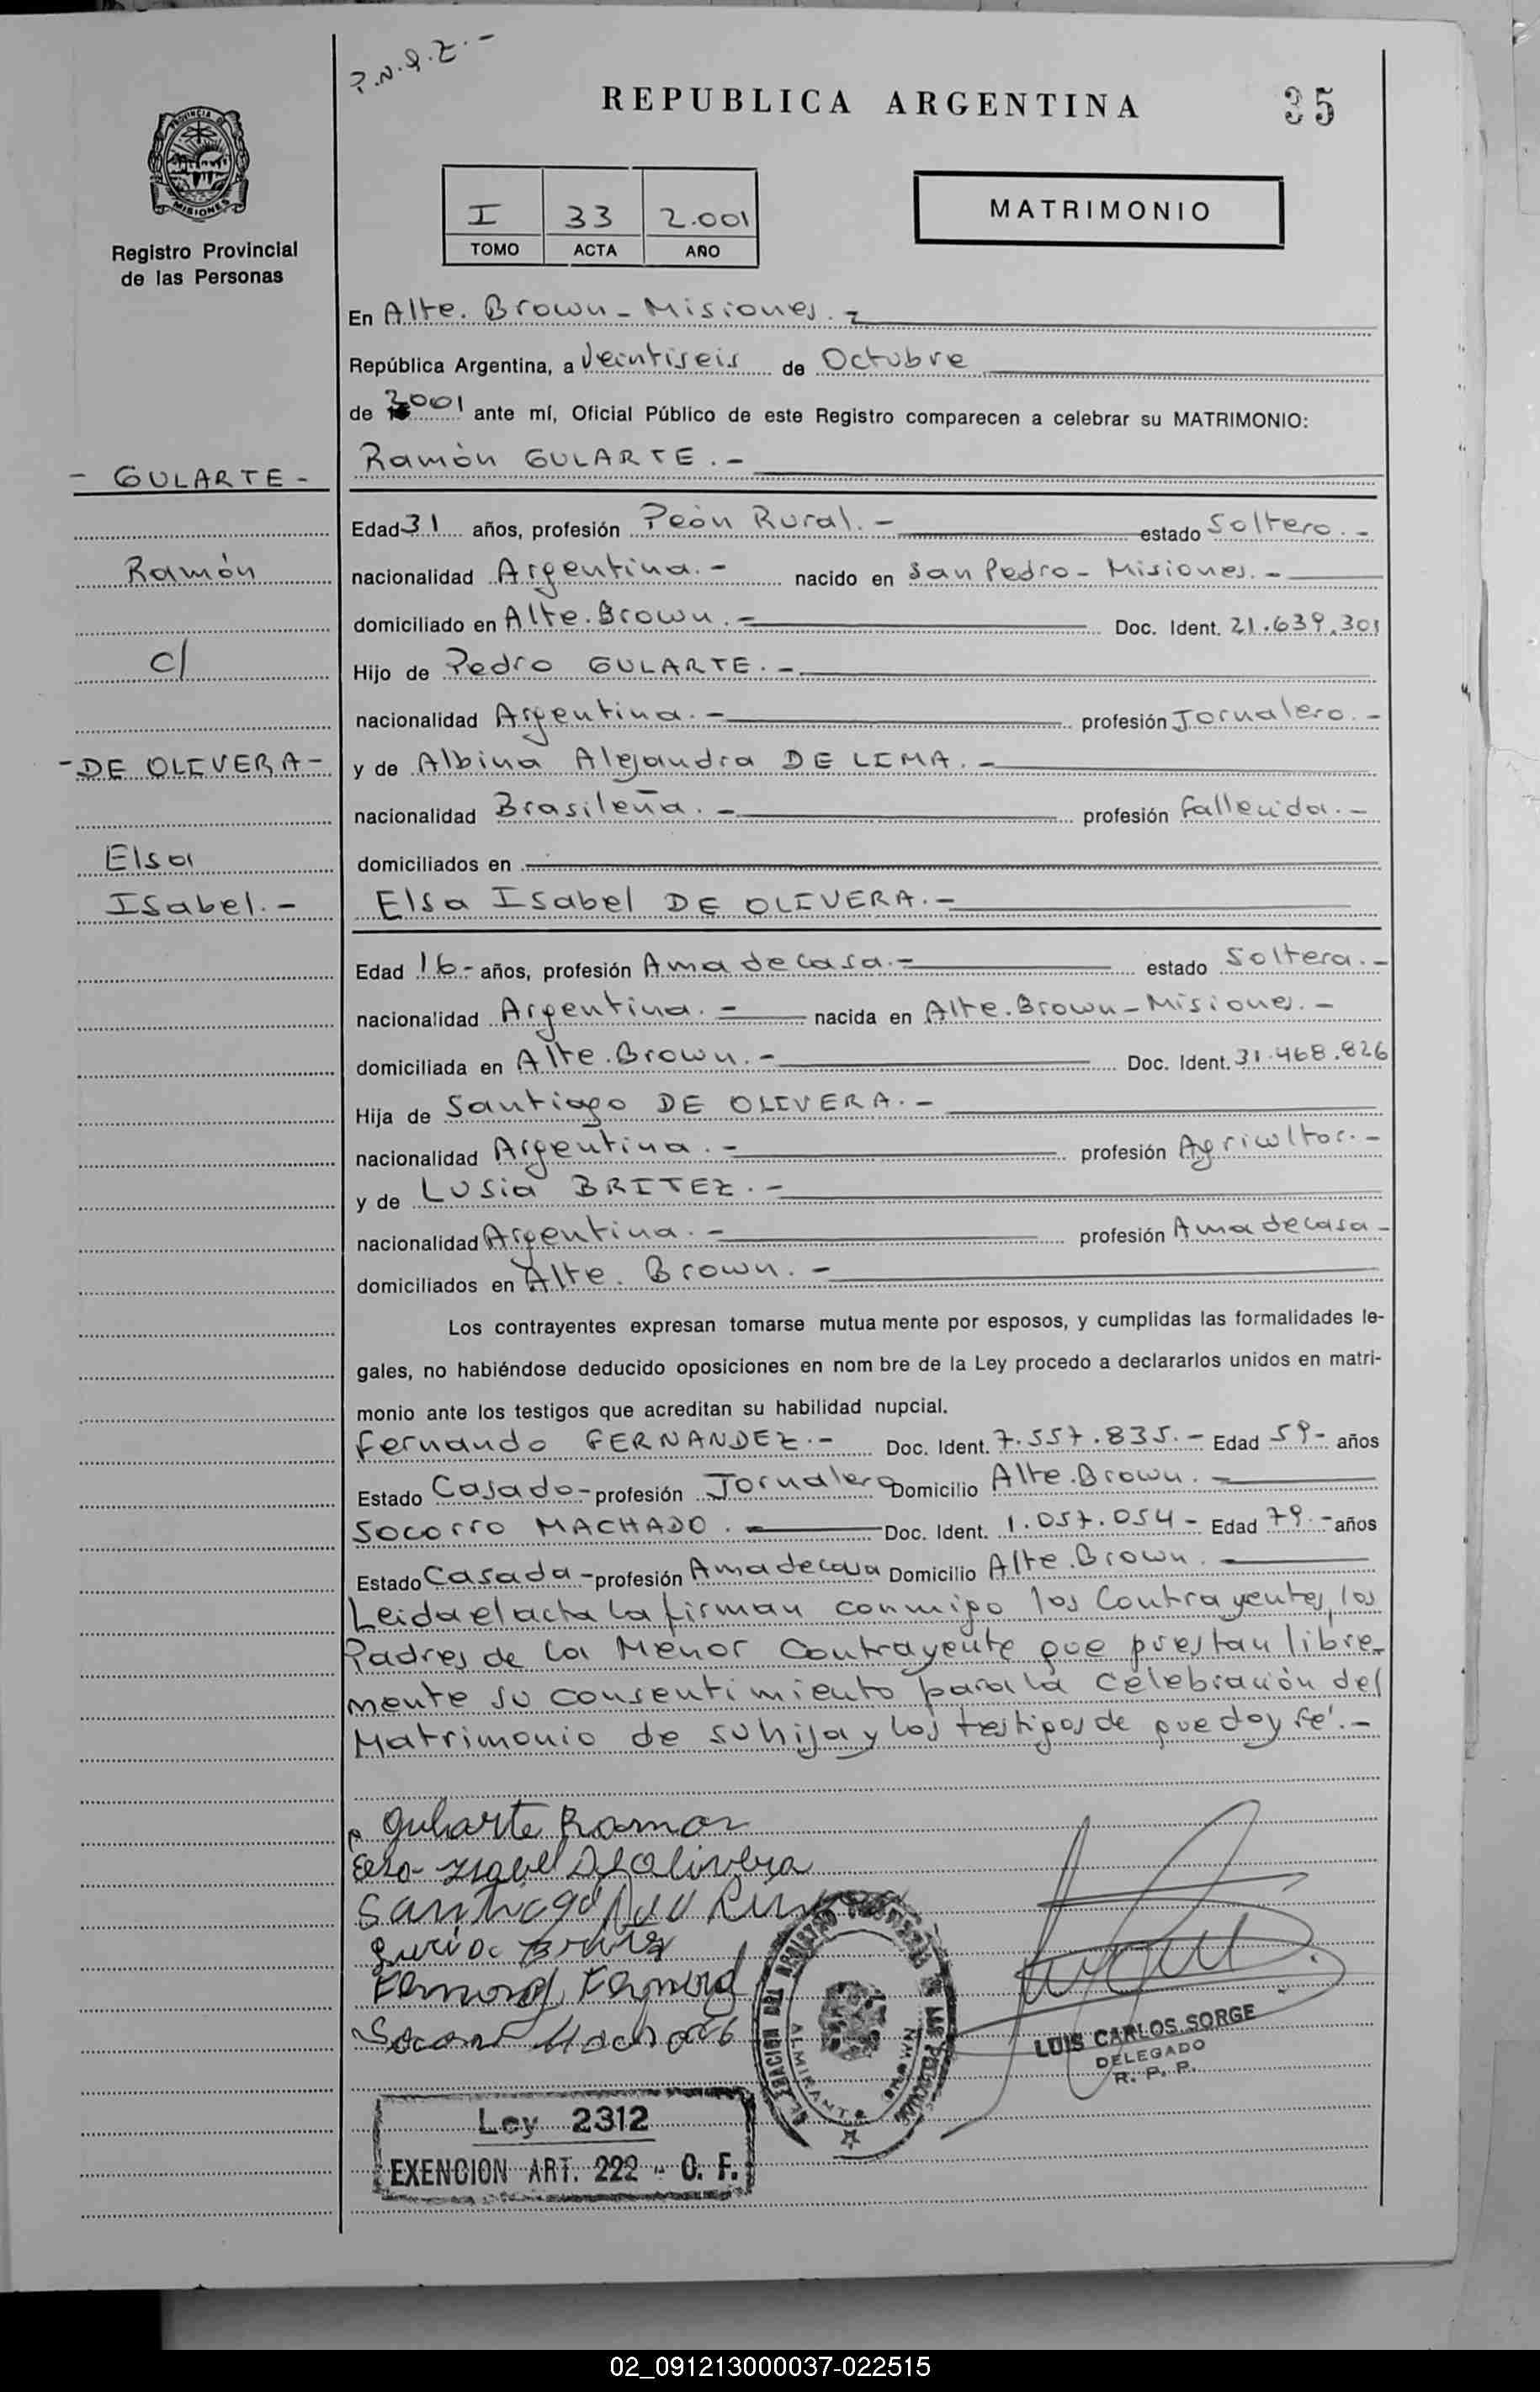 P.N.Q.Z.-
REPUBLICA ARGENTINA
35
PROVINCIA DE
MISIONES
Registro Provincial
de las Personas
I 33 2.001
TOMO ACTA AÑO
MATRIMONIO
En Alte. Brown - Misiones.-
República Argentina, a Veintiseis de Octubre
de 2001 ante mí, Oficial Público de este Registro comparecen a celebrar su MATRIMONIO:
- GULARTE -
Ramón GULARTE.-
Edad 31 años, profesión Peón Rural.- estado Soltero.-
Ramón
nacionalidad Argentina.- nacido en San Pedro - Misiones.-
domiciliado en Alte. Brown.- Doc. Ident. 21.639.301
c/
Hijo de Pedro GULARTE.-
nacionalidad Argentina.- profesión Jornalero.-
- DE OLIVERA -
y de Albina Alejandra DE LIMA.-
nacionalidad Brasileña.- profesión fallecida.-
Elsa
domiciliados en
Isabel.-
Elsa Isabel DE OLIVERA.-
Edad 16- años, profesión Ama de casa.- estado Soltera.-
nacionalidad Argentina.- nacida en Alte. Brown - Misiones.-
domiciliada en Alte. Brown.- Doc. Ident. 31.468.826
Hija de Santiago DE OLIVERA.-
nacionalidad Argentina.- profesión Agricultor.-
y de Lusia BRITEZ.-
nacionalidad Argentina.- profesión Ama de casa-
domiciliados en Alte. Brown.-
Los contrayentes expresan tomarse mutua mente por esposos, y cumplidas las formalidades le-
gales, no habiéndose deducido oposiciones en nom bre de la Ley procedo a declararlos unidos en matri-
monio ante los testigos que acreditan su habilidad nupcial.
Fernando FERNANDEZ.- Doc. Ident. 7.557.835.- Edad 59- años
Estado Casado- profesión Jornalero Domicilio Alte. Brown.-
Socorro MACHADO.- Doc. Ident. 1.057.054- Edad 79.- años
Estado Casada- profesión Ama de casa Domicilio Alte. Brown.
Leida el acta la firman conmigo los Contrayentes, los
Padres de la Menor Contrayente que prestan libre-
mente su consentimiento para la celebración del
Matrimonio de su hija y los testigos de que doy fé.-
Gularte Ramon
Elsa Isabel De Olivera
Santiago
Lucia Britez
Socorro Machado
ALMIRANTE BROWN
LUIS CARLOS SORGE
DELEGADO
R. P. P.
Ley 2312
EXENCION ART. 222 - C. F.
02_091213000037-022515